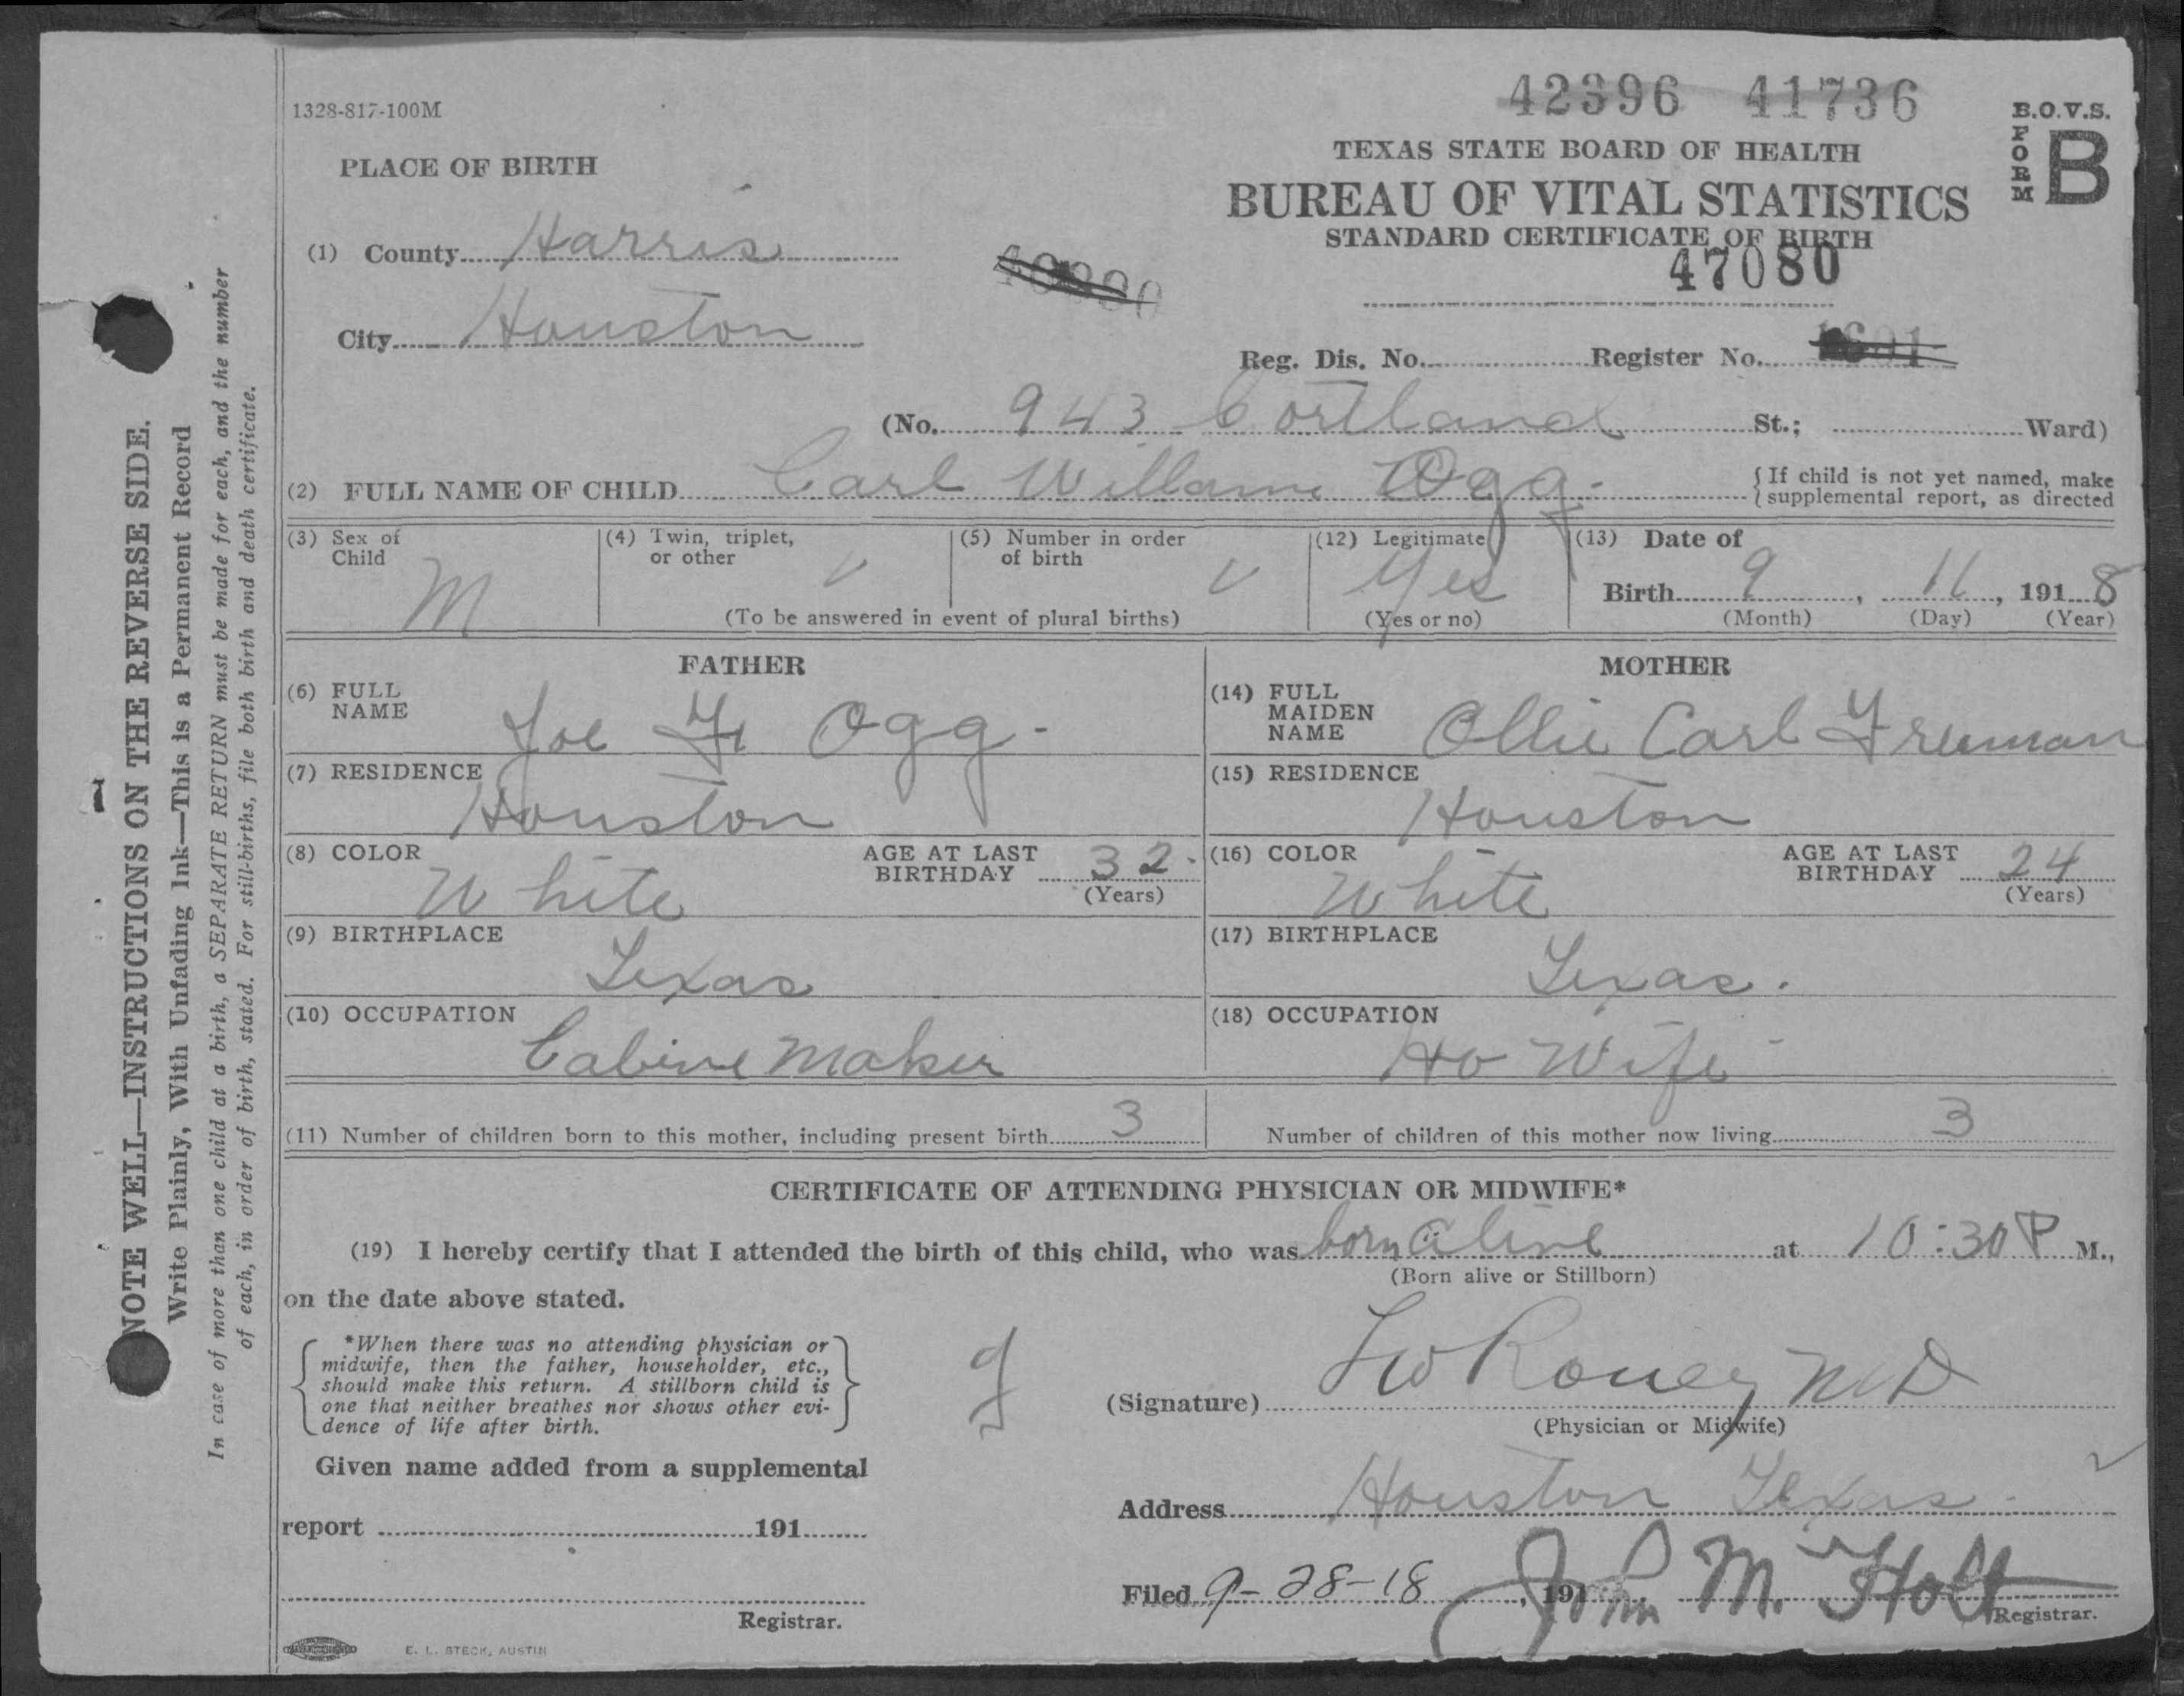 42396 41736
1328-817-100M
B.O.V.S.
FORM B
TEXAS STATE BOARD OF HEALTH
BUREAU OF VITAL STATISTICS
STANDARD CERTIFICATE OF BIRTH
47080
PLACE OF BIRTH
(1) County Harris
City Houston
Reg. Dis. No. Register No.
(No. 943 Cortland St.; Ward)
(2) FULL NAME OF CHILD Carl Willam Ogg.
{If child is not yet named, make
{supplemental report, as directed
(3) Sex of Child M
(4) Twin, triplet, or other
(5) Number in order of birth
(To be answered in event of plural births)
(12) Legitimate Yes
(Yes or no)
(13) Date of
Birth 9, 11, 1918
(Month) (Day) (Year)
FATHER
(6) FULL NAME Joe F Ogg -
(7) RESIDENCE
Houston
(8) COLOR White
AGE AT LAST BIRTHDAY 32
(Years)
(9) BIRTHPLACE
Texas
(10) OCCUPATION
Cabine Maker
MOTHER
(14) FULL MAIDEN NAME Ollie Carl Freeman
(15) RESIDENCE
Houston
(16) COLOR White
AGE AT LAST BIRTHDAY 24
(Years)
(17) BIRTHPLACE
Texas.
(18) OCCUPATION
Ho Wife
(11) Number of children born to this mother, including present birth 3
Number of children of this mother now living 3
CERTIFICATE OF ATTENDING PHYSICIAN OR MIDWIFE*
(19) I hereby certify that I attended the birth of this child, who was born alive at 10:30 P M.,
(Born alive or Stillborn)
on the date above stated.
*When there was no attending physician or
midwife, then the father, householder, etc.,
should make this return. A stillborn child is
one that neither breathes nor shows other evi-
dence of life after birth.
(Signature) Roney MD
(Physician or Midwife)
Given name added from a supplemental
report 191
Registrar.
Address Houston Texas
Filed 9-28-18, 191 John M. Holt
Registrar.
E. L. STECK, AUSTIN
NOTE WELL—INSTRUCTIONS ON THE REVERSE SIDE.
Write Plainly, With Unfading Ink—This is a Permanent Record
In case of more than one child at a birth, a SEPARATE RETURN must be made for each, and the number
of each, in order of birth, stated. For still-births, file both birth and death certificate.